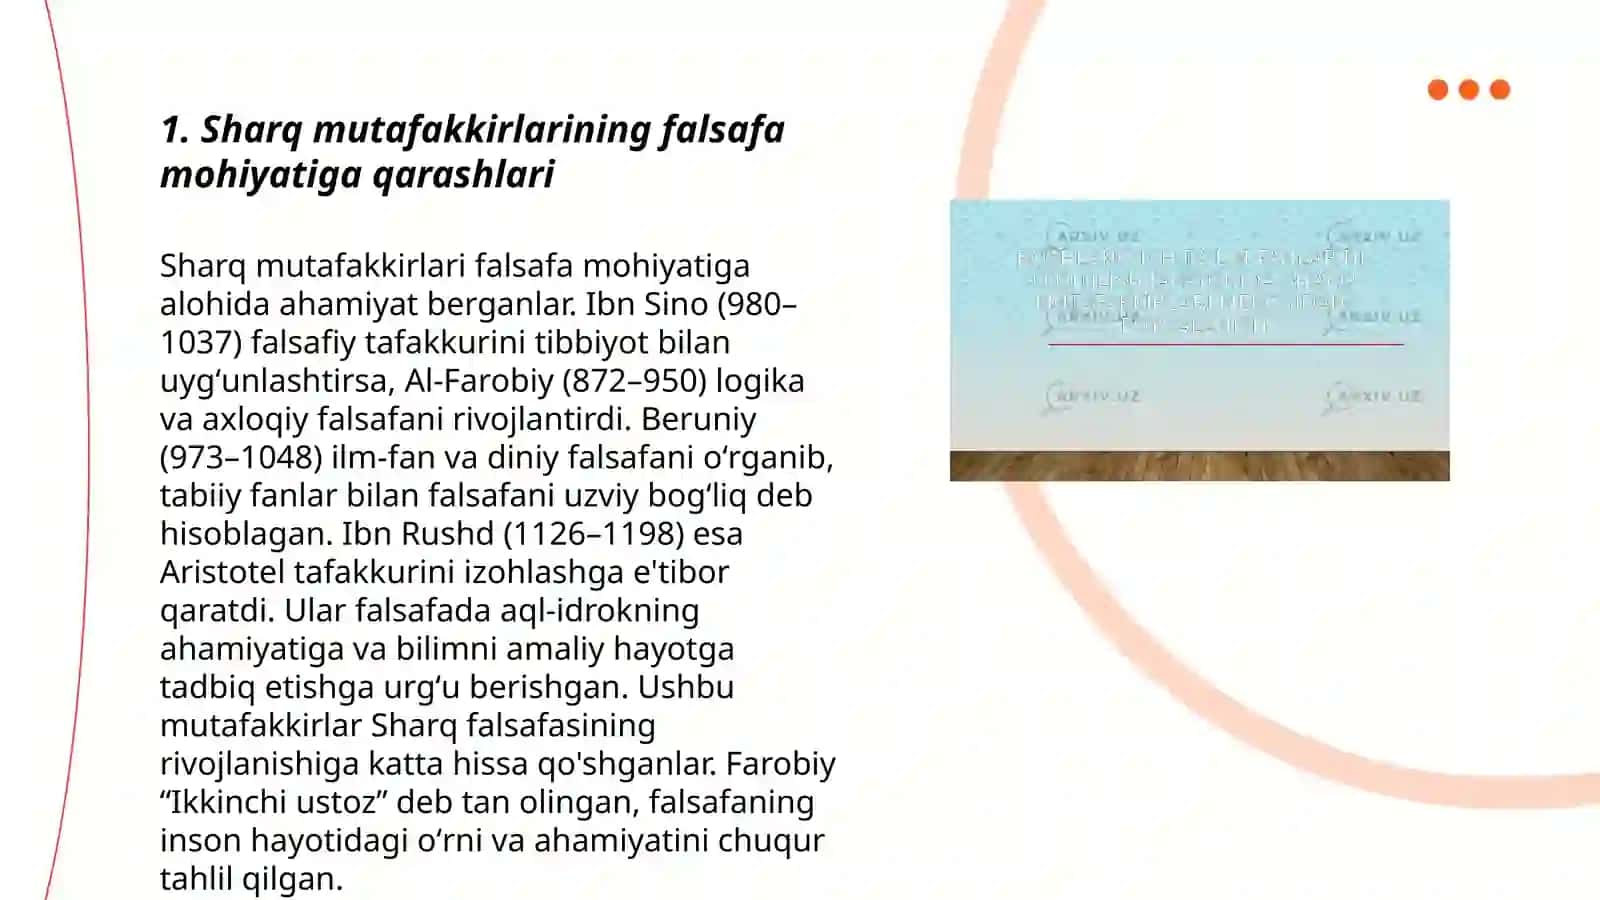 1. Sharq mutafakkirlarining falsafa
mohiyatiga qarashlari
Sharq mutafakkirlari falsafa mohiyatiga
alohida ahamiyat berganlar. Ibn Sino (980–
1037) falsafiy tafakkurini tibbiyot bilan
uyg‘unlashtirsa, Al-Farobiy (872–950) logika
va axloqiy falsafani rivojlantirdi. Beruniy
(973–1048) ilm-fan va diniy falsafani o‘rganib,
tabiiy fanlar bilan falsafani uzviy bog‘liq deb
hisoblagan. Ibn Rushd (1126–1198) esa
Aristotel tafakkurini izohlashga e'tibor
qaratdi. Ular falsafada aql-idrokning
ahamiyatiga va bilimni amaliy hayotga
tadbiq etishga urg‘u berishgan. Ushbu
mutafakkirlar Sharq falsafasining
rivojlanishiga katta hissa qo'shganlar. Farobiy
“Ikkinchi ustoz” deb tan olingan, falsafaning
inson hayotidagi o‘rni va ahamiyatini chuqur
tahlil qilgan.
ARXIV.UZ ARXIV.UZ
ARXIV.UZ ARXIV.UZ
ARXIV.UZ ARXIV.UZ